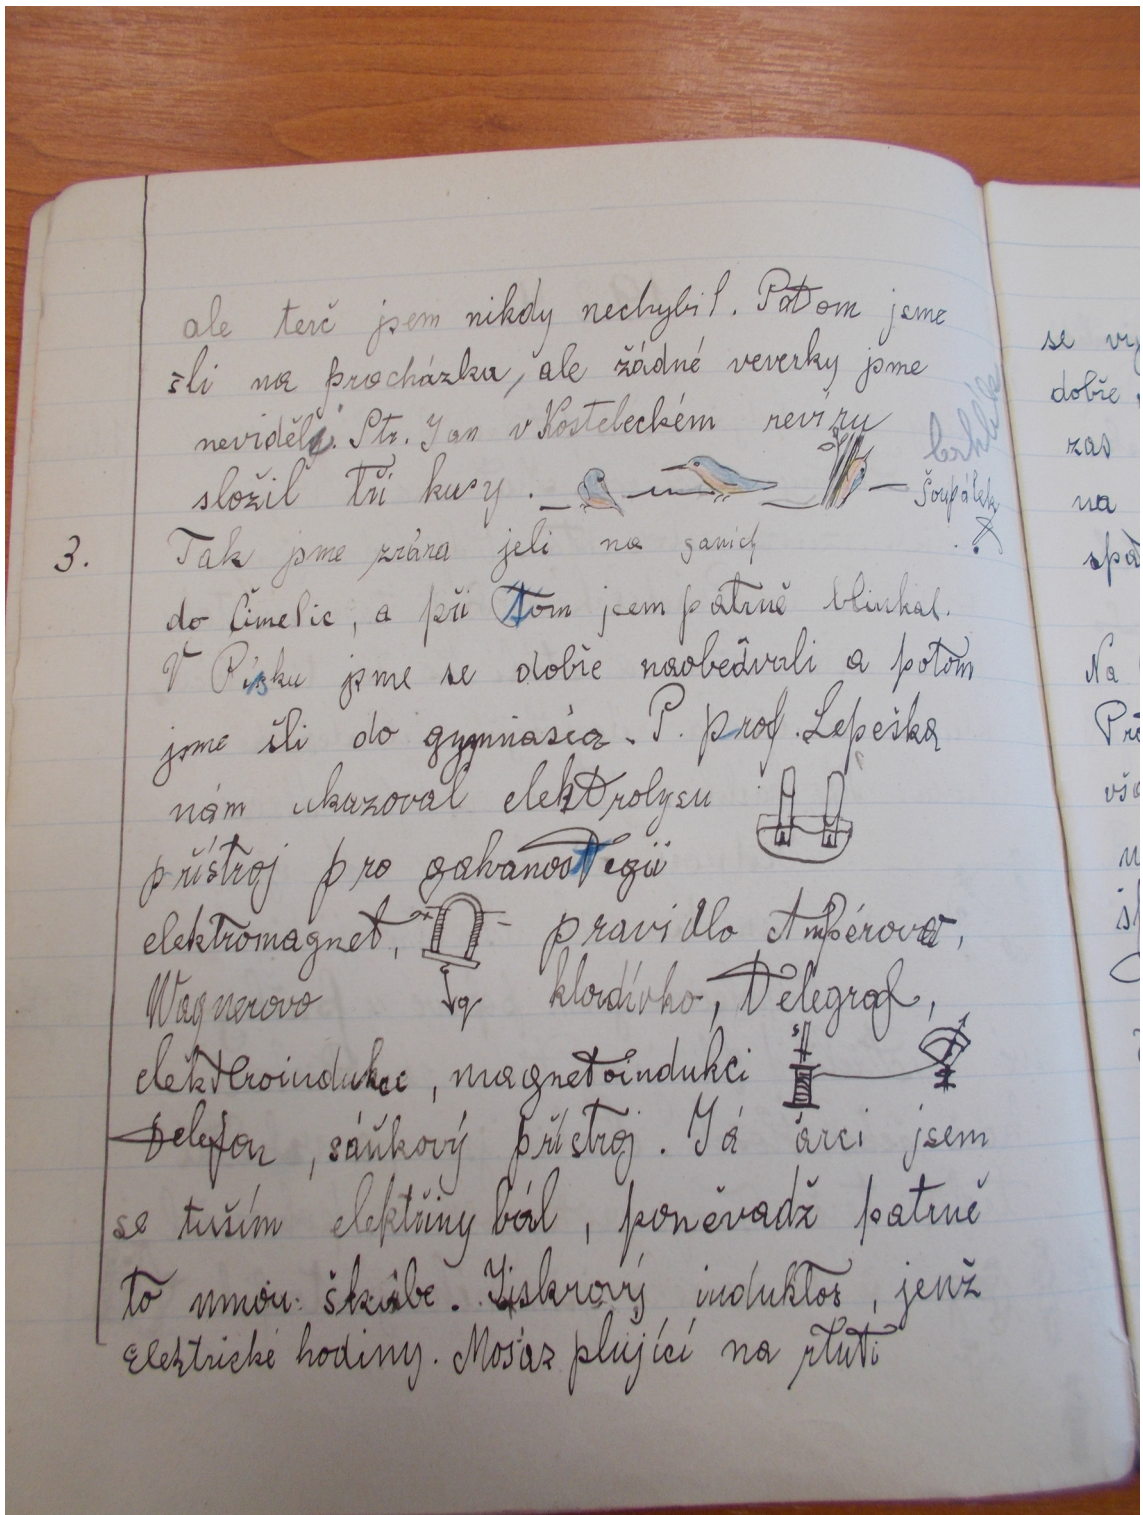 ale terč jsem nikdy nechybil. Potom jsme
šli na procházku, ale žádné veverky jsme
neviděli. Str. Jan v Kosteleckém revíru
složil tři kusy.
brhlík
šoupálek
3. Tak jsme zrána jeli na saních
do Čimelic, a při tom jsem patrně blinkal.
V Písku jsme se dobře naobědvali a potom
jsme šli do gymnasia. P. prof. Lepeška
nám ukazoval elektrolysu
přístroj pro galvanostegii
elektromagnet, pravidlo Ampérovo,
Wagnerovo kladívko, telegraf,
elektroindukci, magnetoindukci
telefon, sáňkový přístroj. Já árci jsem
se tuším elektřiny bál, poněvadž patrně
to mnou škube. Jiskrový induktor, jenž
Elektrické hodiny. Mosaz plující na rtuti
se
dobře
zas
na
Na